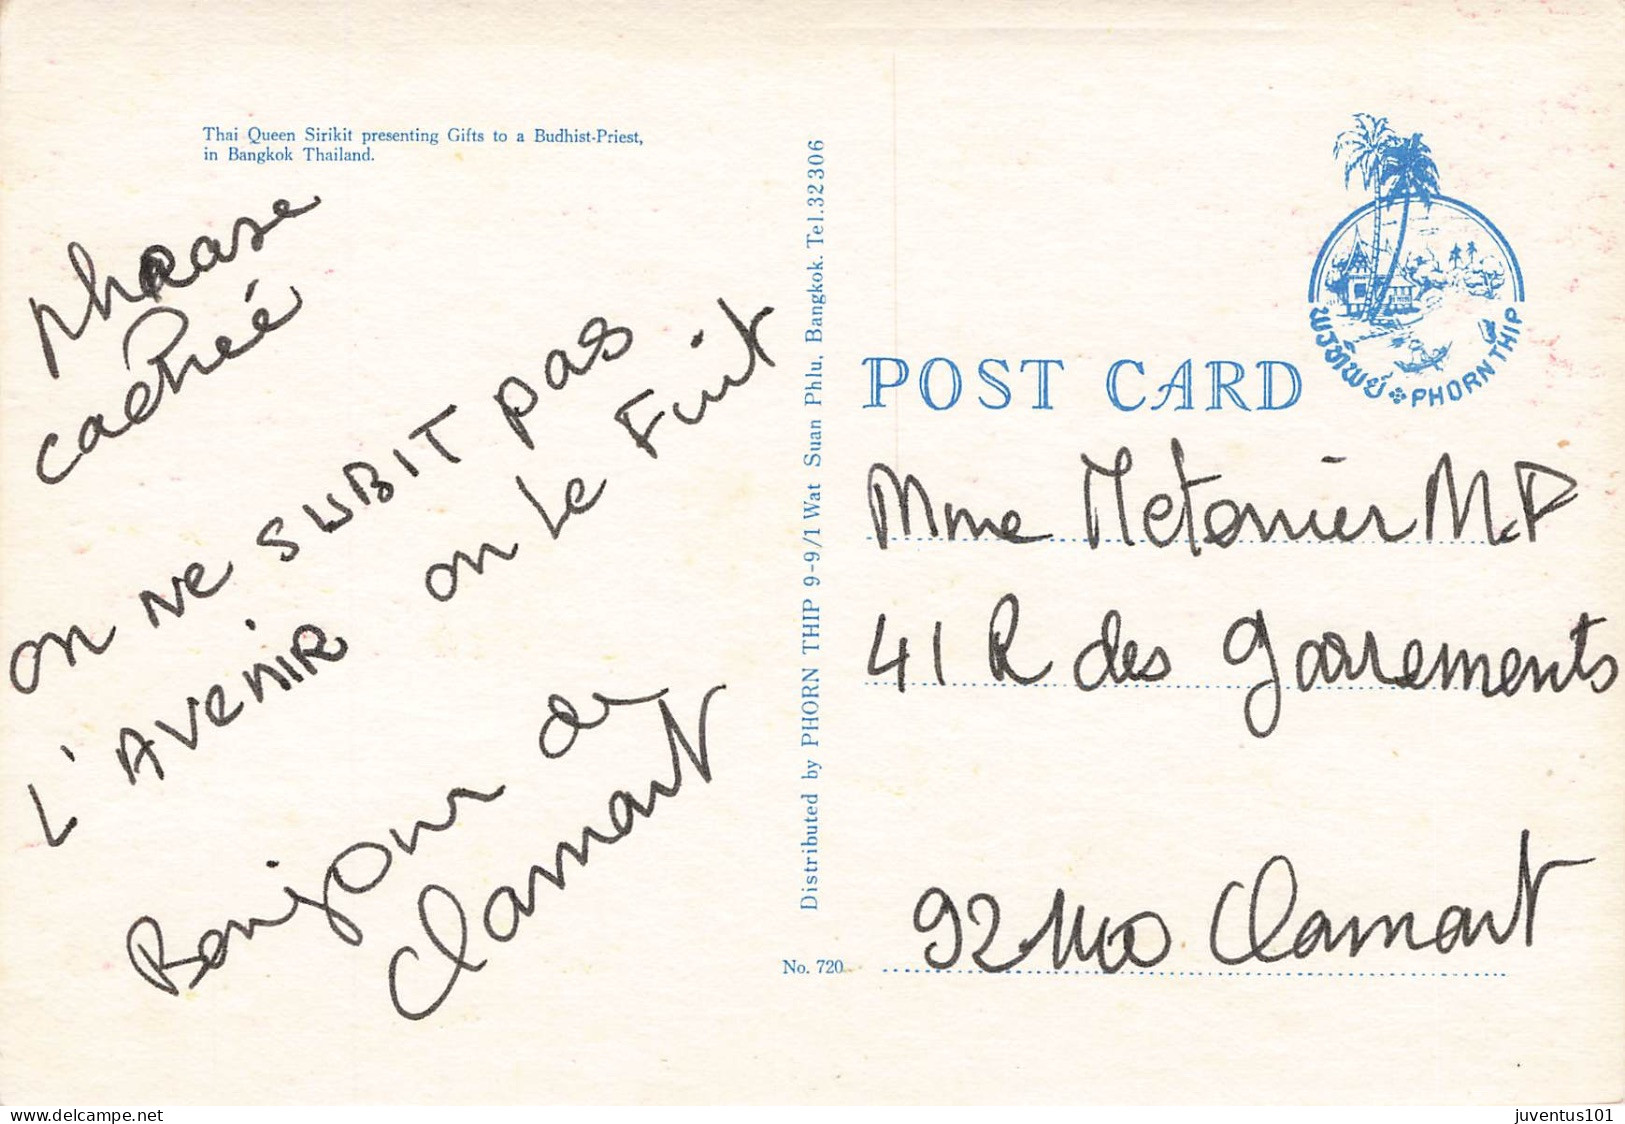 Thai Queen Sirikit presenting Gifts to a Budhist-Priest,
in Bangkok Thailand.
phrase
cachée
on ne SUBIT pas
L'AVENIR on le Fuit
Bonjour de
Clamart
Distributed by PHORN THIP 9-9/1 Wat Suan Phlu. Bangkok. Tel.32306
No. 720
POST CARD
พรทิพย์ PHORN THIP
Mme Metorier M.P
41 R des garrements
92140 Clamart
juventus101